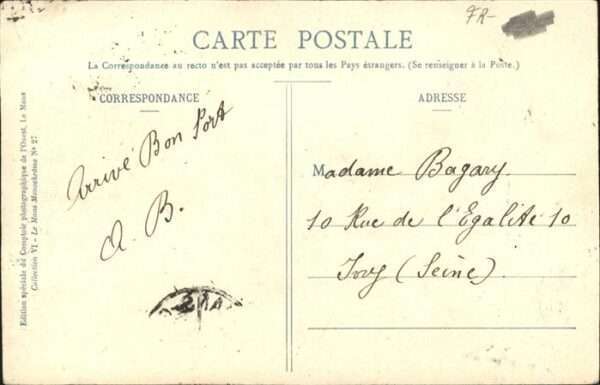 FR-
CARTE POSTALE
La Correspondance au recto n'est pas acceptée par tous les Pays étrangers. (Se renseigner à la Poste.)
CORRESPONDANCE
Arrivé Bon Port
A. B.
ADRESSE
Madame Bagary
10 Rue de l'Egalité 10
Ivry (Seine)
Edition spéciale du Comptoir photographique de l'Ouest, Le Mans
Collection VI - Le Mans Monochrome N° 27